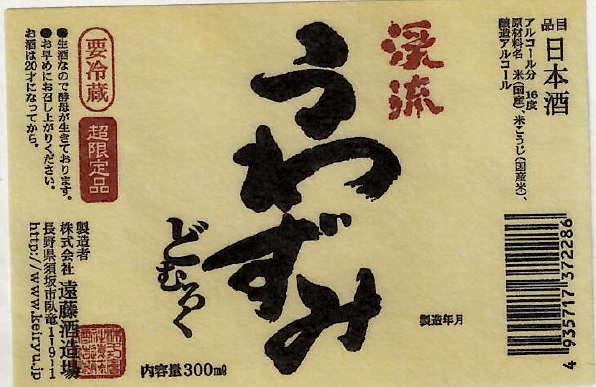 品目 日本酒
アルコール分 16度
原材料名 米(国産)、米こうじ(国産米)、
醸造アルコール
4 935717 372286
渓流
うわずみ
どむろく
製造年月
内容量300㎖
要冷蔵
超限定品
●生酒なので酵母が生きております。
●お早めにお召し上がりください。
お酒は20才になってから。
製造者
株式会社 遠藤酒造場
長野県須坂市臥竜1-9-1
http://www.keiryu.jp